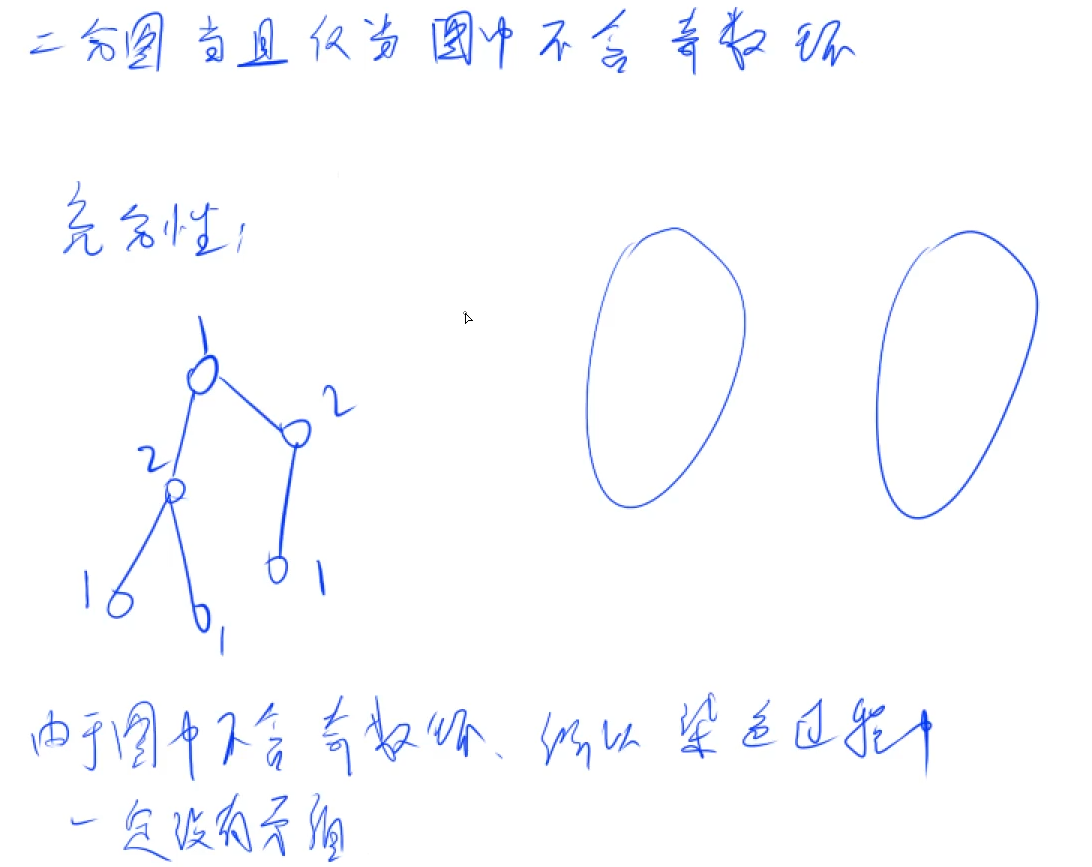 二分图当且仅当图中不含奇数环
充分性：
1
2
2
1
1
1
由于图中不含奇数环、所以染色过程中
一定没有矛盾